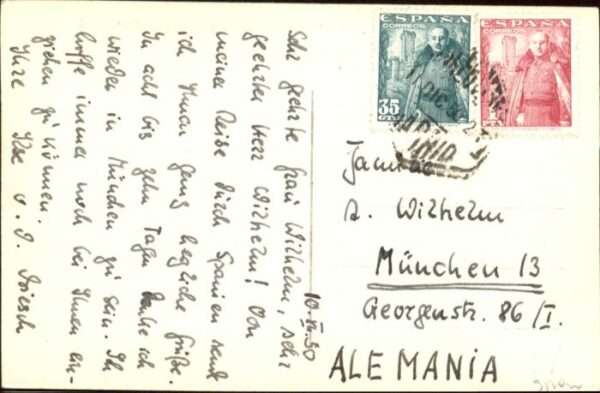 Sehr geehrte Frau Wilhelm, sehr
geehrter Herr Wilhelm! Von
meiner Reise durch Spanien send
ich Ihnen ganz herzliche Grüße.
In acht bis zehn Tagen denke ich
wieder in München zu sein. Ich
hoffe immer noch bei Ihnen ein-
ziehen zu können.
Ihre Ilse v. D.
10.XII.50
ESPAÑA
CORREOS
35
ESPAÑA
CORREOS
DIC
Familie
A. Wilhelm
München 13
Georgenstr. 86/I.
ALEMANIA